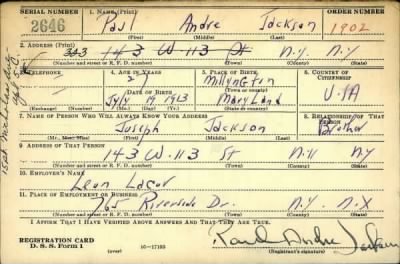 SERIAL NUMBER 1. NAME (Print) ORDER NUMBER
2646 Paul Andre Jackson 1902
(First) (Middle) (Last)
2. ADDRESS (Print)
143 W. 113 St N.Y. N.Y
(Number and street or R. F. D. number) (Town) (County) (State)
3. TELEPHONE 4. AGE IN YEARS 5. PLACE OF BIRTH 6. COUNTRY OF CITIZENSHIP
Millington
DATE OF BIRTH (Town or county)
July 19 1913 Maryland USA
(Exchange) (Number) (Mo.) (Day) (Yr.) (State or country)
7. NAME OF PERSON WHO WILL ALWAYS KNOW YOUR ADDRESS 8. RELATIONSHIP OF THAT PERSON
Joseph Jackson Brother
(Mr., Mrs., Miss) (First) (Middle) (Last)
9. ADDRESS OF THAT PERSON
143 W. 113 St N.Y N.Y
(Number and street or R. F. D. number) (Town) (County) (State)
10. EMPLOYER'S NAME
Leon
11. PLACE OF EMPLOYMENT OR BUSINESS
765 Riverside Dr. N.Y.
(Number and street or R. F. D. number) (Town) (County) (State)
I AFFIRM THAT I HAVE VERIFIED ABOVE ANSWERS AND THAT THEY ARE TRUE.
REGISTRATION CARD
D. S. S. Form 1 (over) 16—17105 Paul Andre Jackson
(Registrant's signature)